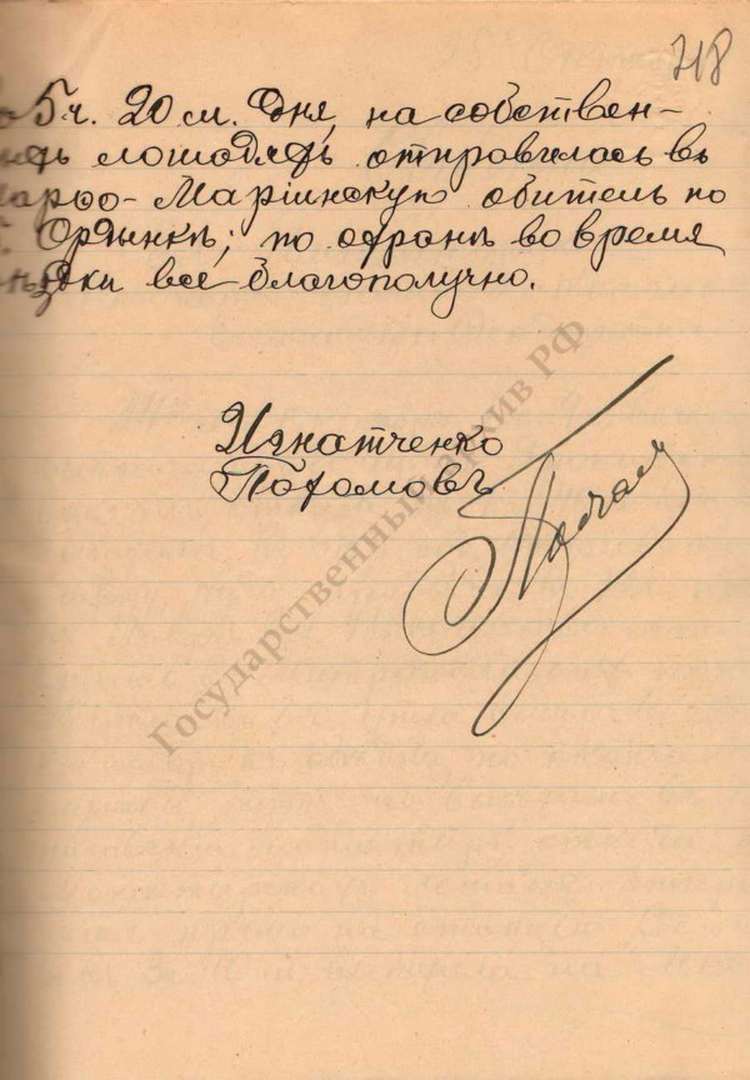 718
5 ч. 20 м. дня, на собствен-
ныхъ лошадяхъ отправилась въ
Марѳо-Маріинскую обитель по
Ордынкѣ; по охранѣ во время
поѣздки все благополучно.
Игнатченко
Пахомовъ
Государственный архив РФ